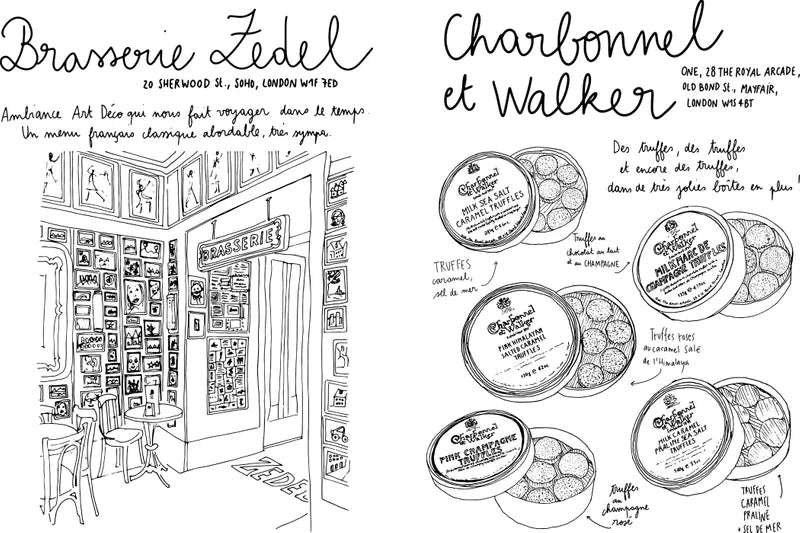 Brasserie Zedel
20 SHERWOOD St., SOHO, LONDON W1F 7ED
Ambiance Art Déco qui nous fait voyager dans le temps.
Un menu français classique abordable, très sympa.
BRASSERIE
ZEDEL
Charbonnel
et Walker
ONE, 28 THE ROYAL ARCADE,
OLD BOND St., MAYFAIR,
LONDON W1S 4BT
Des truffes, des truffes
et encore des truffes,
dans de très jolies boîtes en plus !
Charbonnel
et Walker
MILK SEA SALT
CARAMEL TRUFFLES
TRUFFES
caramel,
sel de mer
Truffes au
chocolat au lait
et au CHAMPAGNE
Charbonnel
et Walker
MILK MARC DE
CHAMPAGNE TRUFFLES
Charbonnel
et Walker
PINK HIMALAYAN
SALTED CARAMEL
TRUFFLES
Truffes roses
au caramel salé
de l'Himalaya
Charbonnel
et Walker
PINK CHAMPAGNE
TRUFFLES
truffes
au
champagne
rosé
Charbonnel
et Walker
MILK CARAMEL
PRALINE SEA SALT
TRUFFLES
TRUFFES
CARAMEL
PRALINÉ
+ SEL DE MER